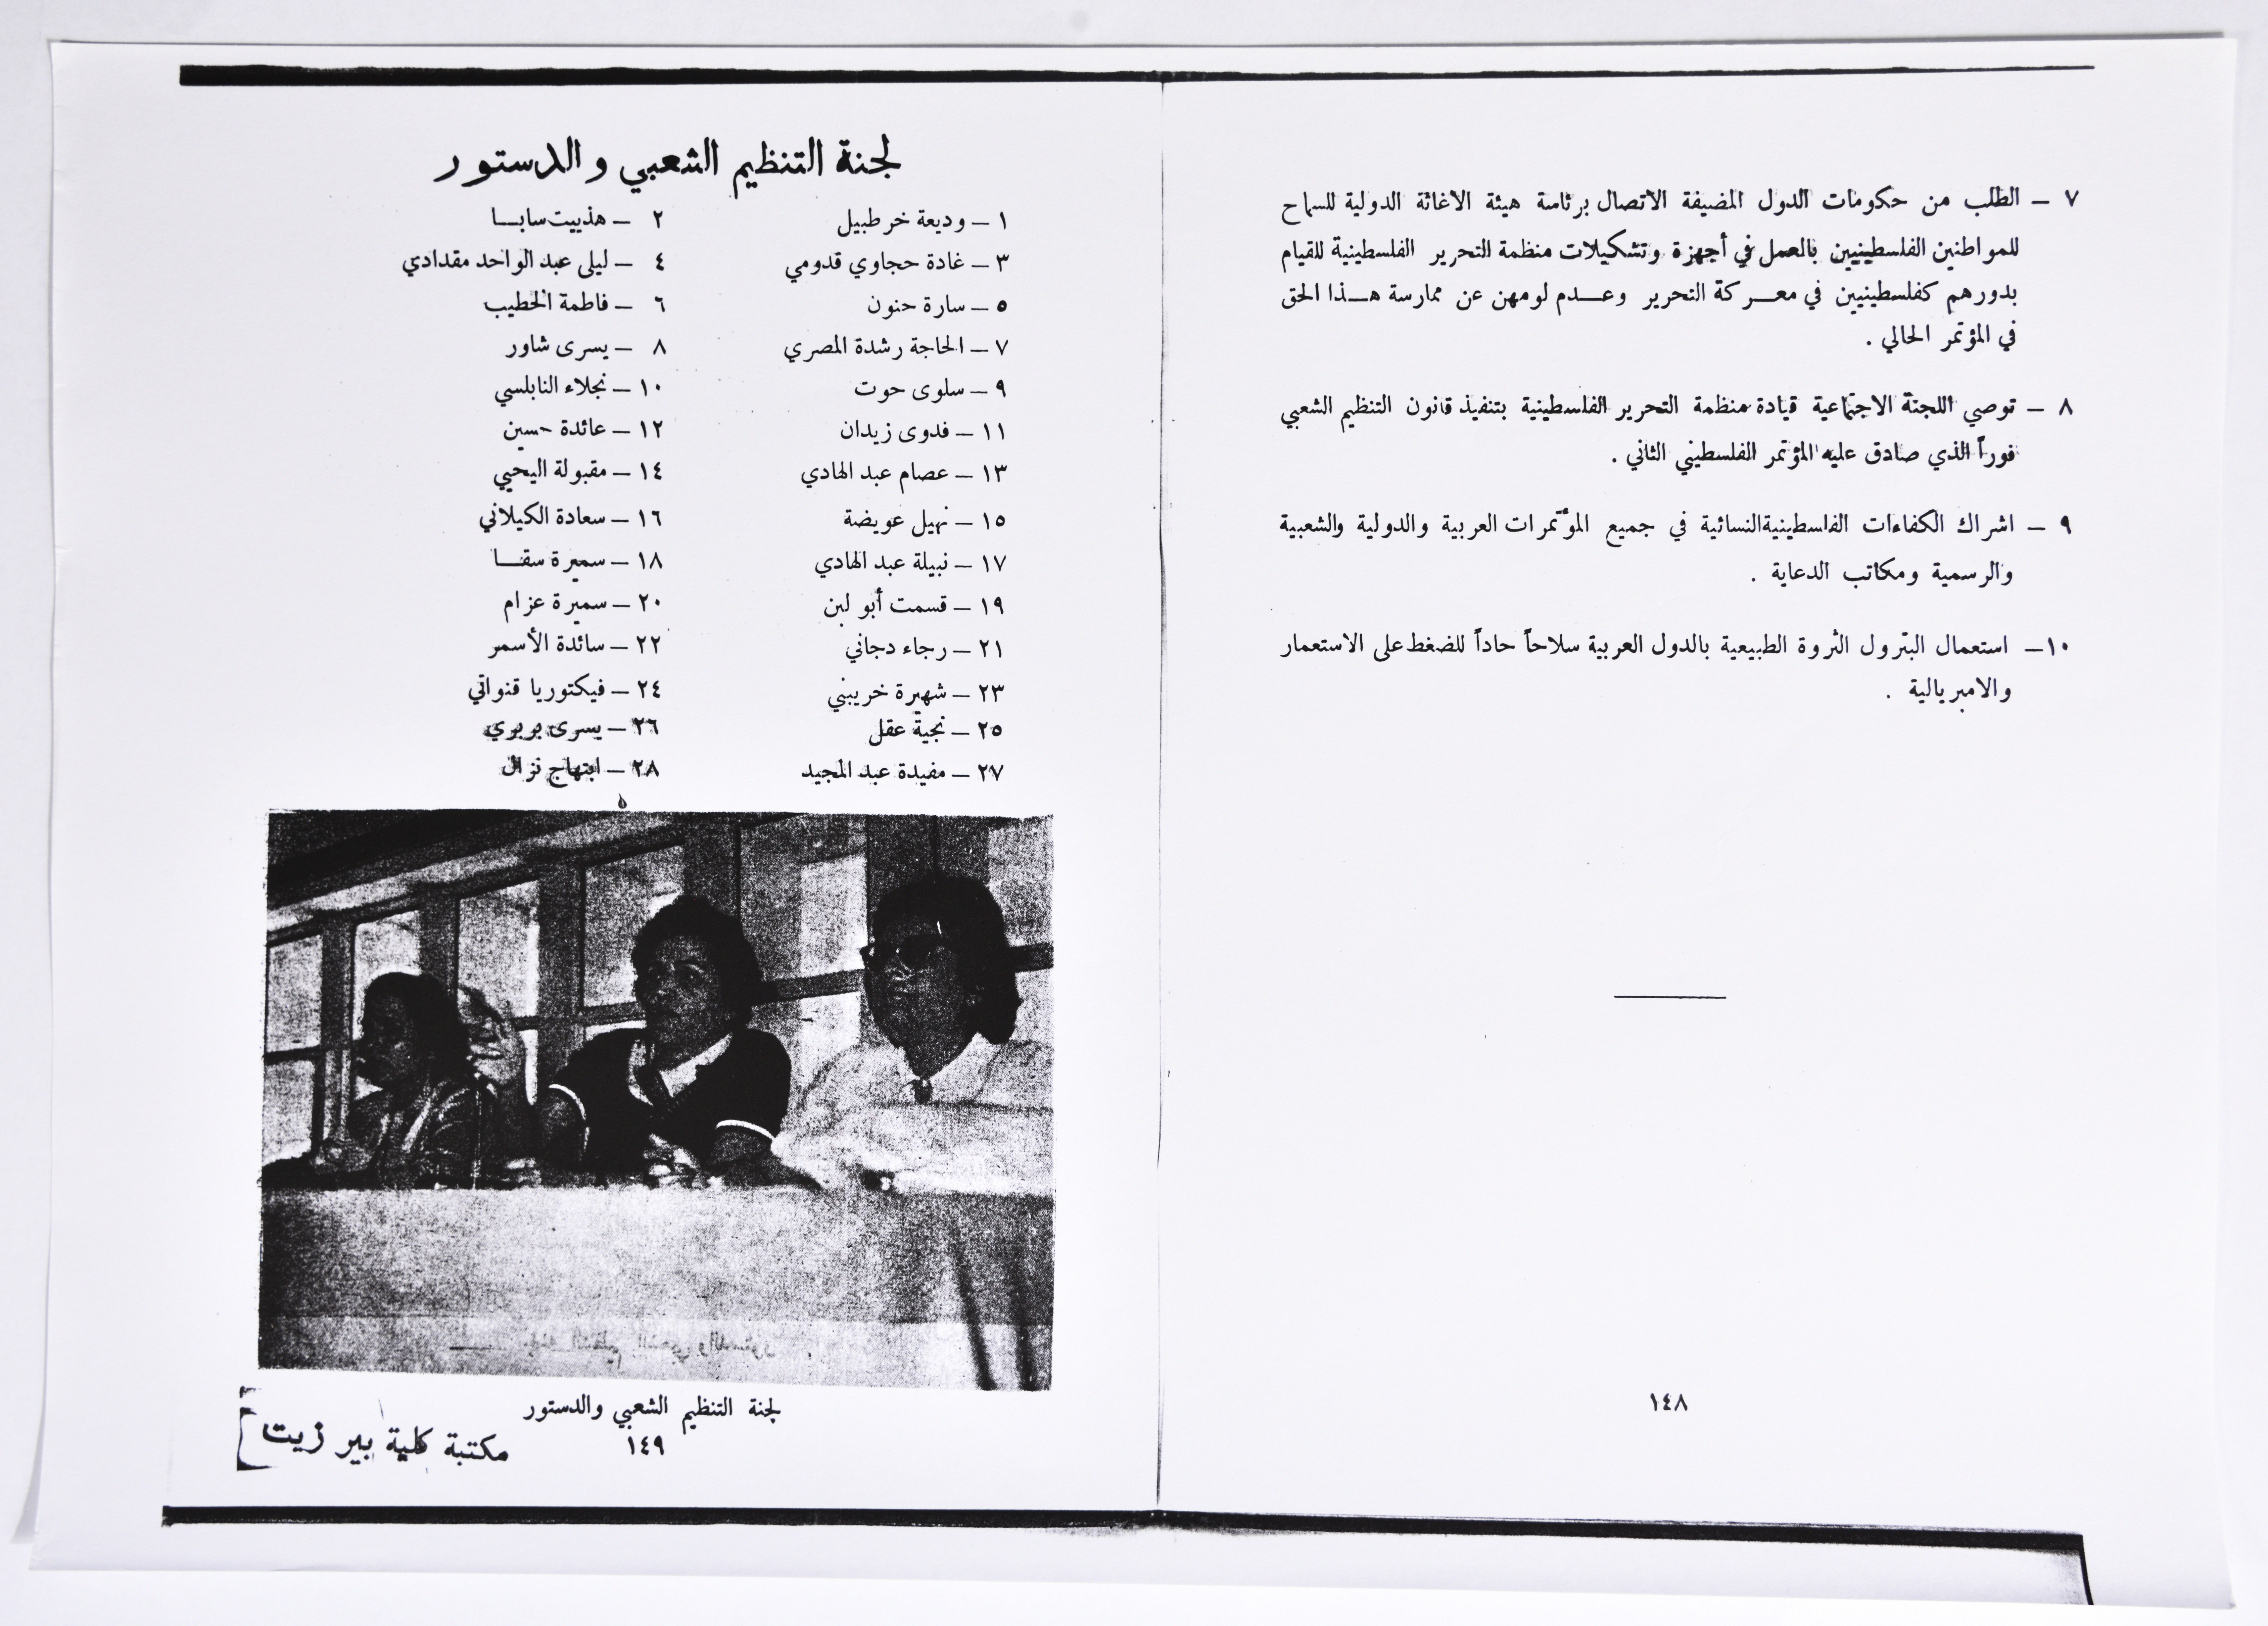 ٧ – الطلب من حكومات الدول المضيفة الاتصال برئاسة هيئة الاغاثة الدولية للسماح
للمواطنين الفلسطينيين بالعمل في أجهزة وتشكيلات منظمة التحرير الفلسطينية للقيام
بدورهم كفلسطينيين في معـــركة التحرير وعـــدم لومهن عن ممارسة هـــذا الحق
في المؤتمر الحالي .
٨ – توصي اللجنة الاجتماعية قيادة منظمة التحرير الفلسطينية بتنفيذ قانون التنظيم الشعبي
فوراً الذي صادق عليه المؤتمر الفلسطيني الثاني .
٩ – اشراك الكفاءات الفلسطينية النسائية في جميع المؤتمرات العربية والدولية والشعبية
والرسمية ومكاتب الدعاية .
١٠ – استعمال البترول الثروة الطبيعية بالدول العربية سلاحاً حاداً للضغط على الاستعمار
والامبريالية .
١٤٨
لجنة التنظيم الشعبي والدستور
١ – وديعة خرطبيل ٢ – هذبيت سابـــا
٣ – غادة حجاوي قدومي ٤ – ليلى عبد الواحد مقدادي
٥ – سارة حنون ٦ – فاطمة الخطيب
٧ – الحاجة رشدة المصري ٨ – يسرى شاور
٩ – سلوى حوت ١٠ – نجلاء النابلسي
١١ – فدوى زيدان ١٢ – عائدة حسين
١٣ – عصام عبد الهادي ١٤ – مقبولة اليحيي
١٥ – نهيل عويضة ١٦ – سعادة الكيلاني
١٧ – نبيلة عبد الهادي ١٨ – سميرة سقـــا
١٩ – قسمت أبو لبن ٢٠ – سميرة عزام
٢١ – رجاء دجاني ٢٢ – سائدة الأسمر
٢٣ – شهيرة خريبني ٢٤ – فيكتوريا قنواتي
٢٥ – نجية عقل ٢٦ – يسرى بربري
٢٧ – مفيدة عبد المجيد ٢٨ – ابتهاج نزال
لجنة التنظيم الشعبي والدستور
١٤٩
مكتبة كلية بير زيت